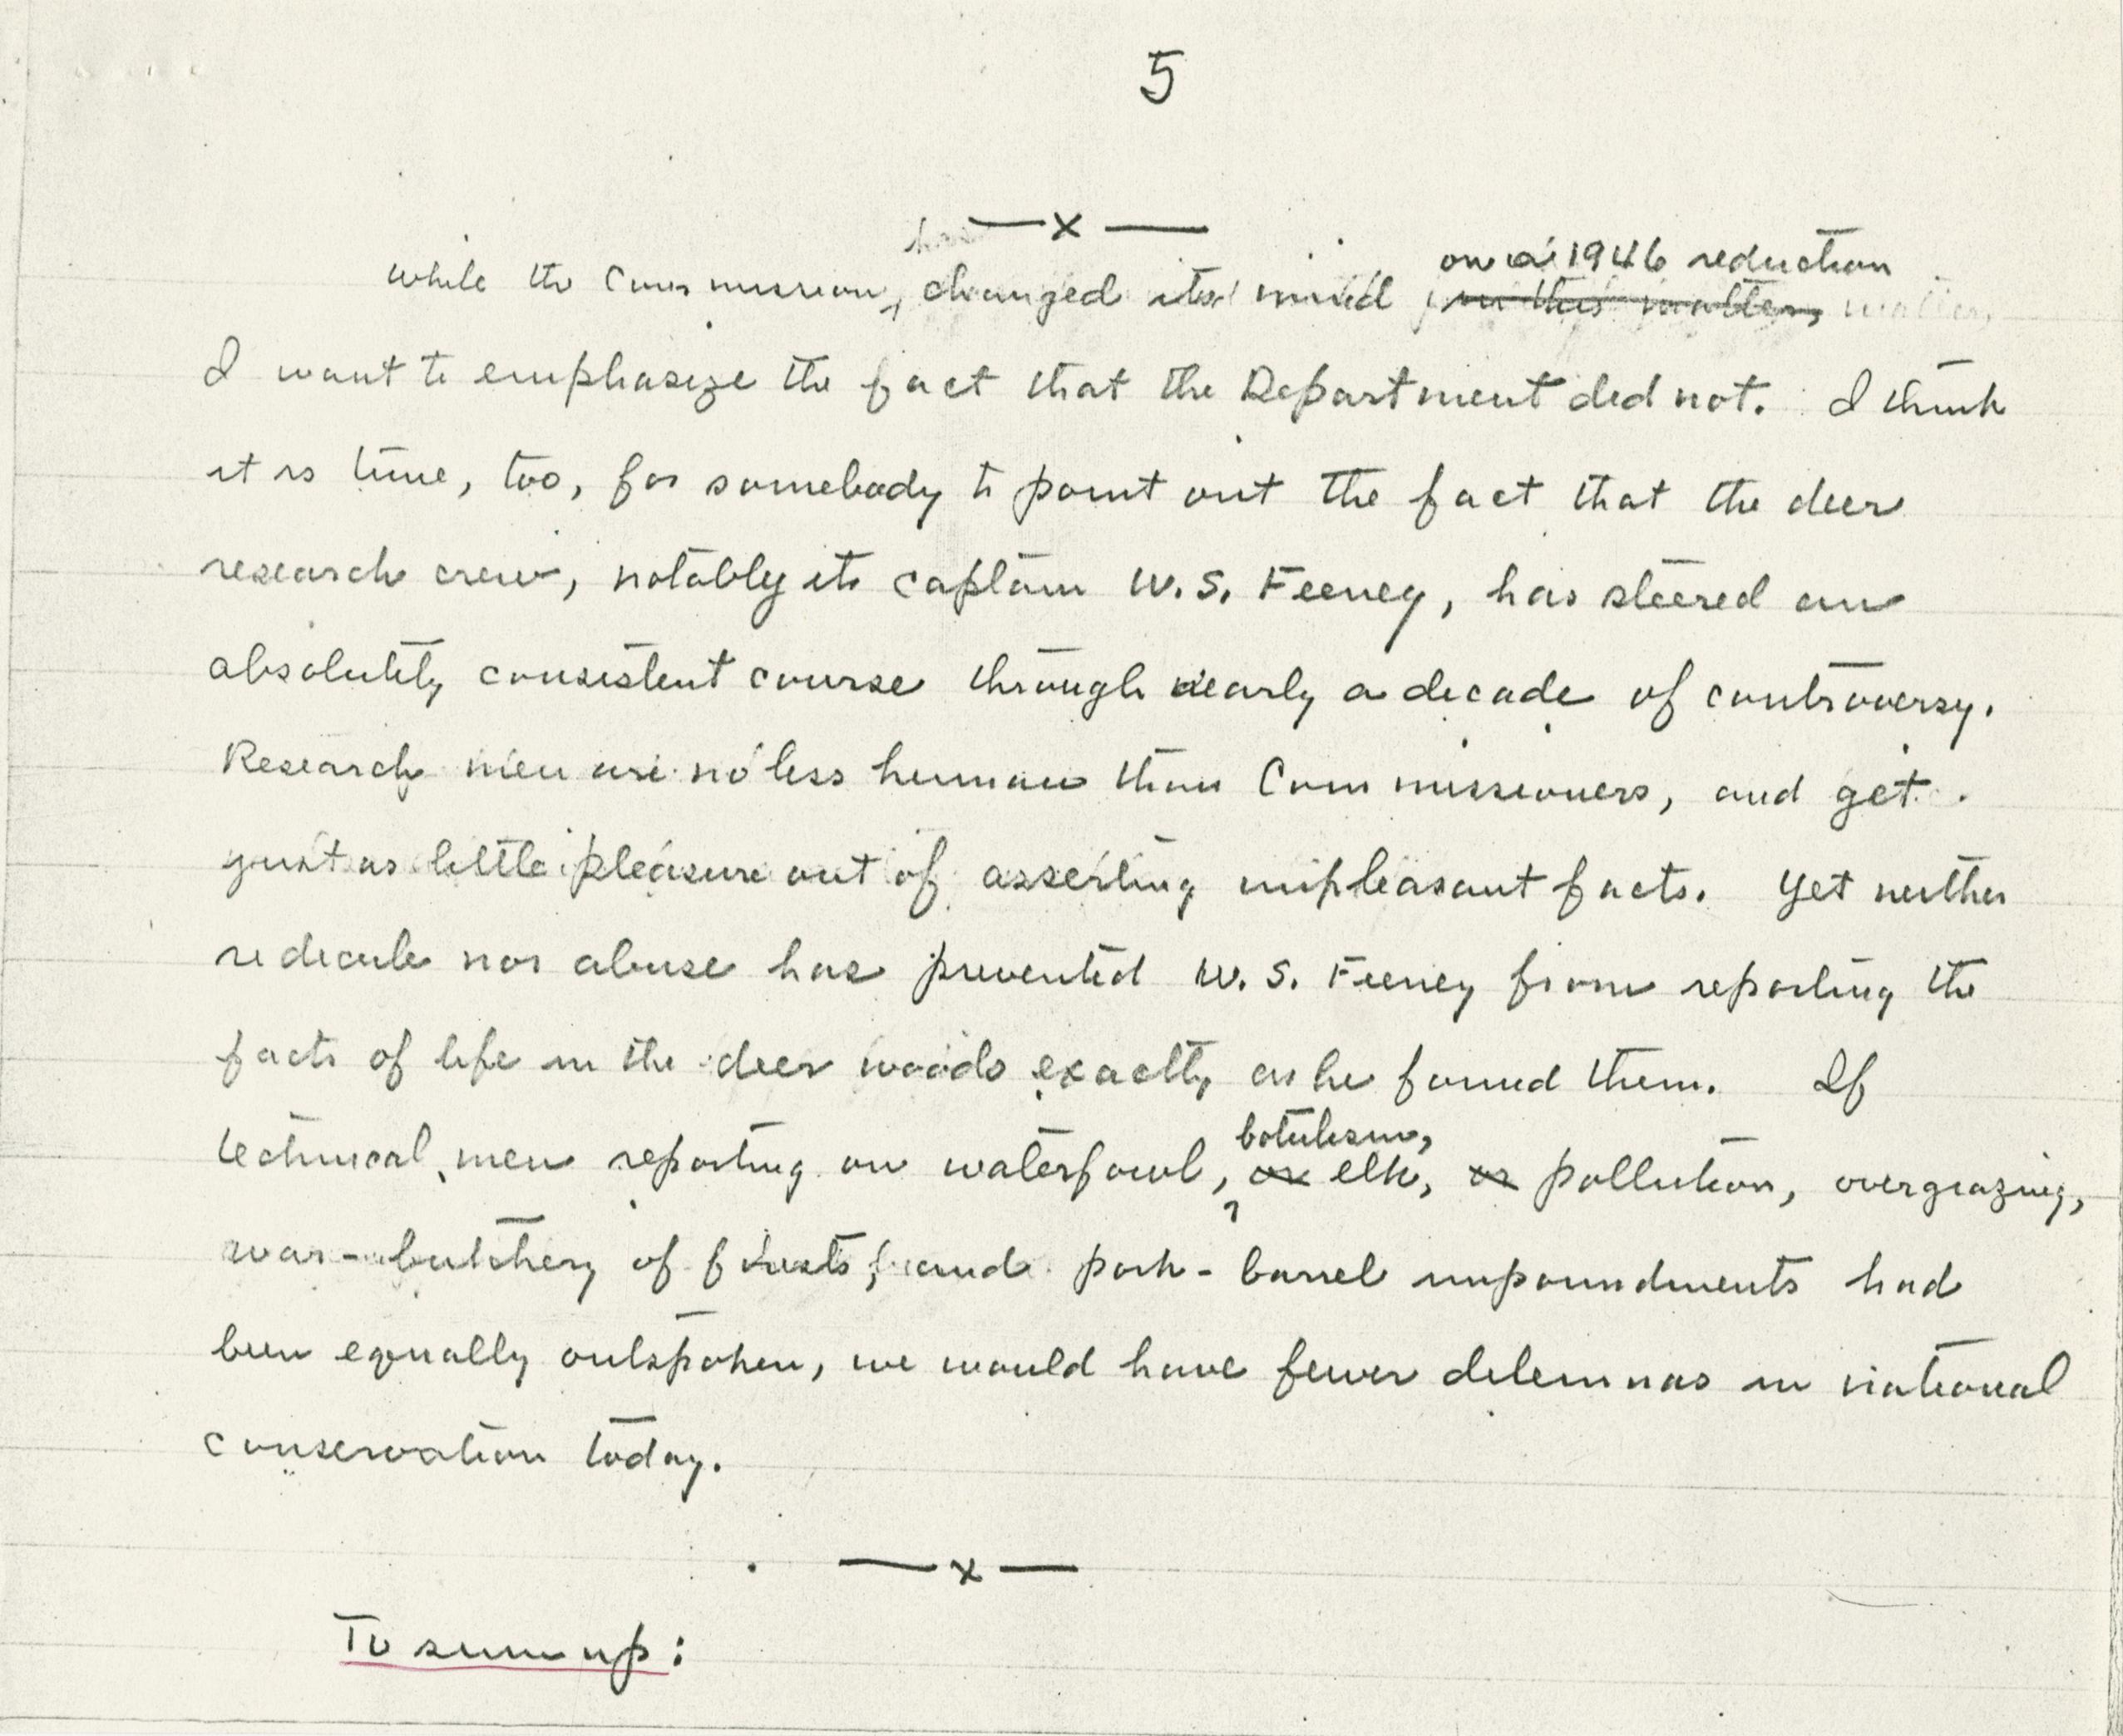 5
— x —
on a 1946 reduction
While the Commission, changed its mind in this matter,
I want to emphasize the fact that the Department did not. I think
it is time, too, for somebody to point out the fact that the deer
research crew, notably its captain W. S. Feeney, has steered an
absolutely consistent course through nearly a decade of controversy.
Research men are no less human than Commissioners, and get
just as little pleasure out of asserting unpleasant facts. Yet neither
redicule nor abuse has prevented W. S. Feeney from reporting the
facts of life in the deer woods exactly as he found them. If
botulism,
technical men reporting on waterfowl, or elk, or pollution, overgrazing,
war-butchery of forests, and pork-barrel impoundments had
been equally outspoken, we would have fewer dilemnas in national
conservation today.
— x —
To sum up: